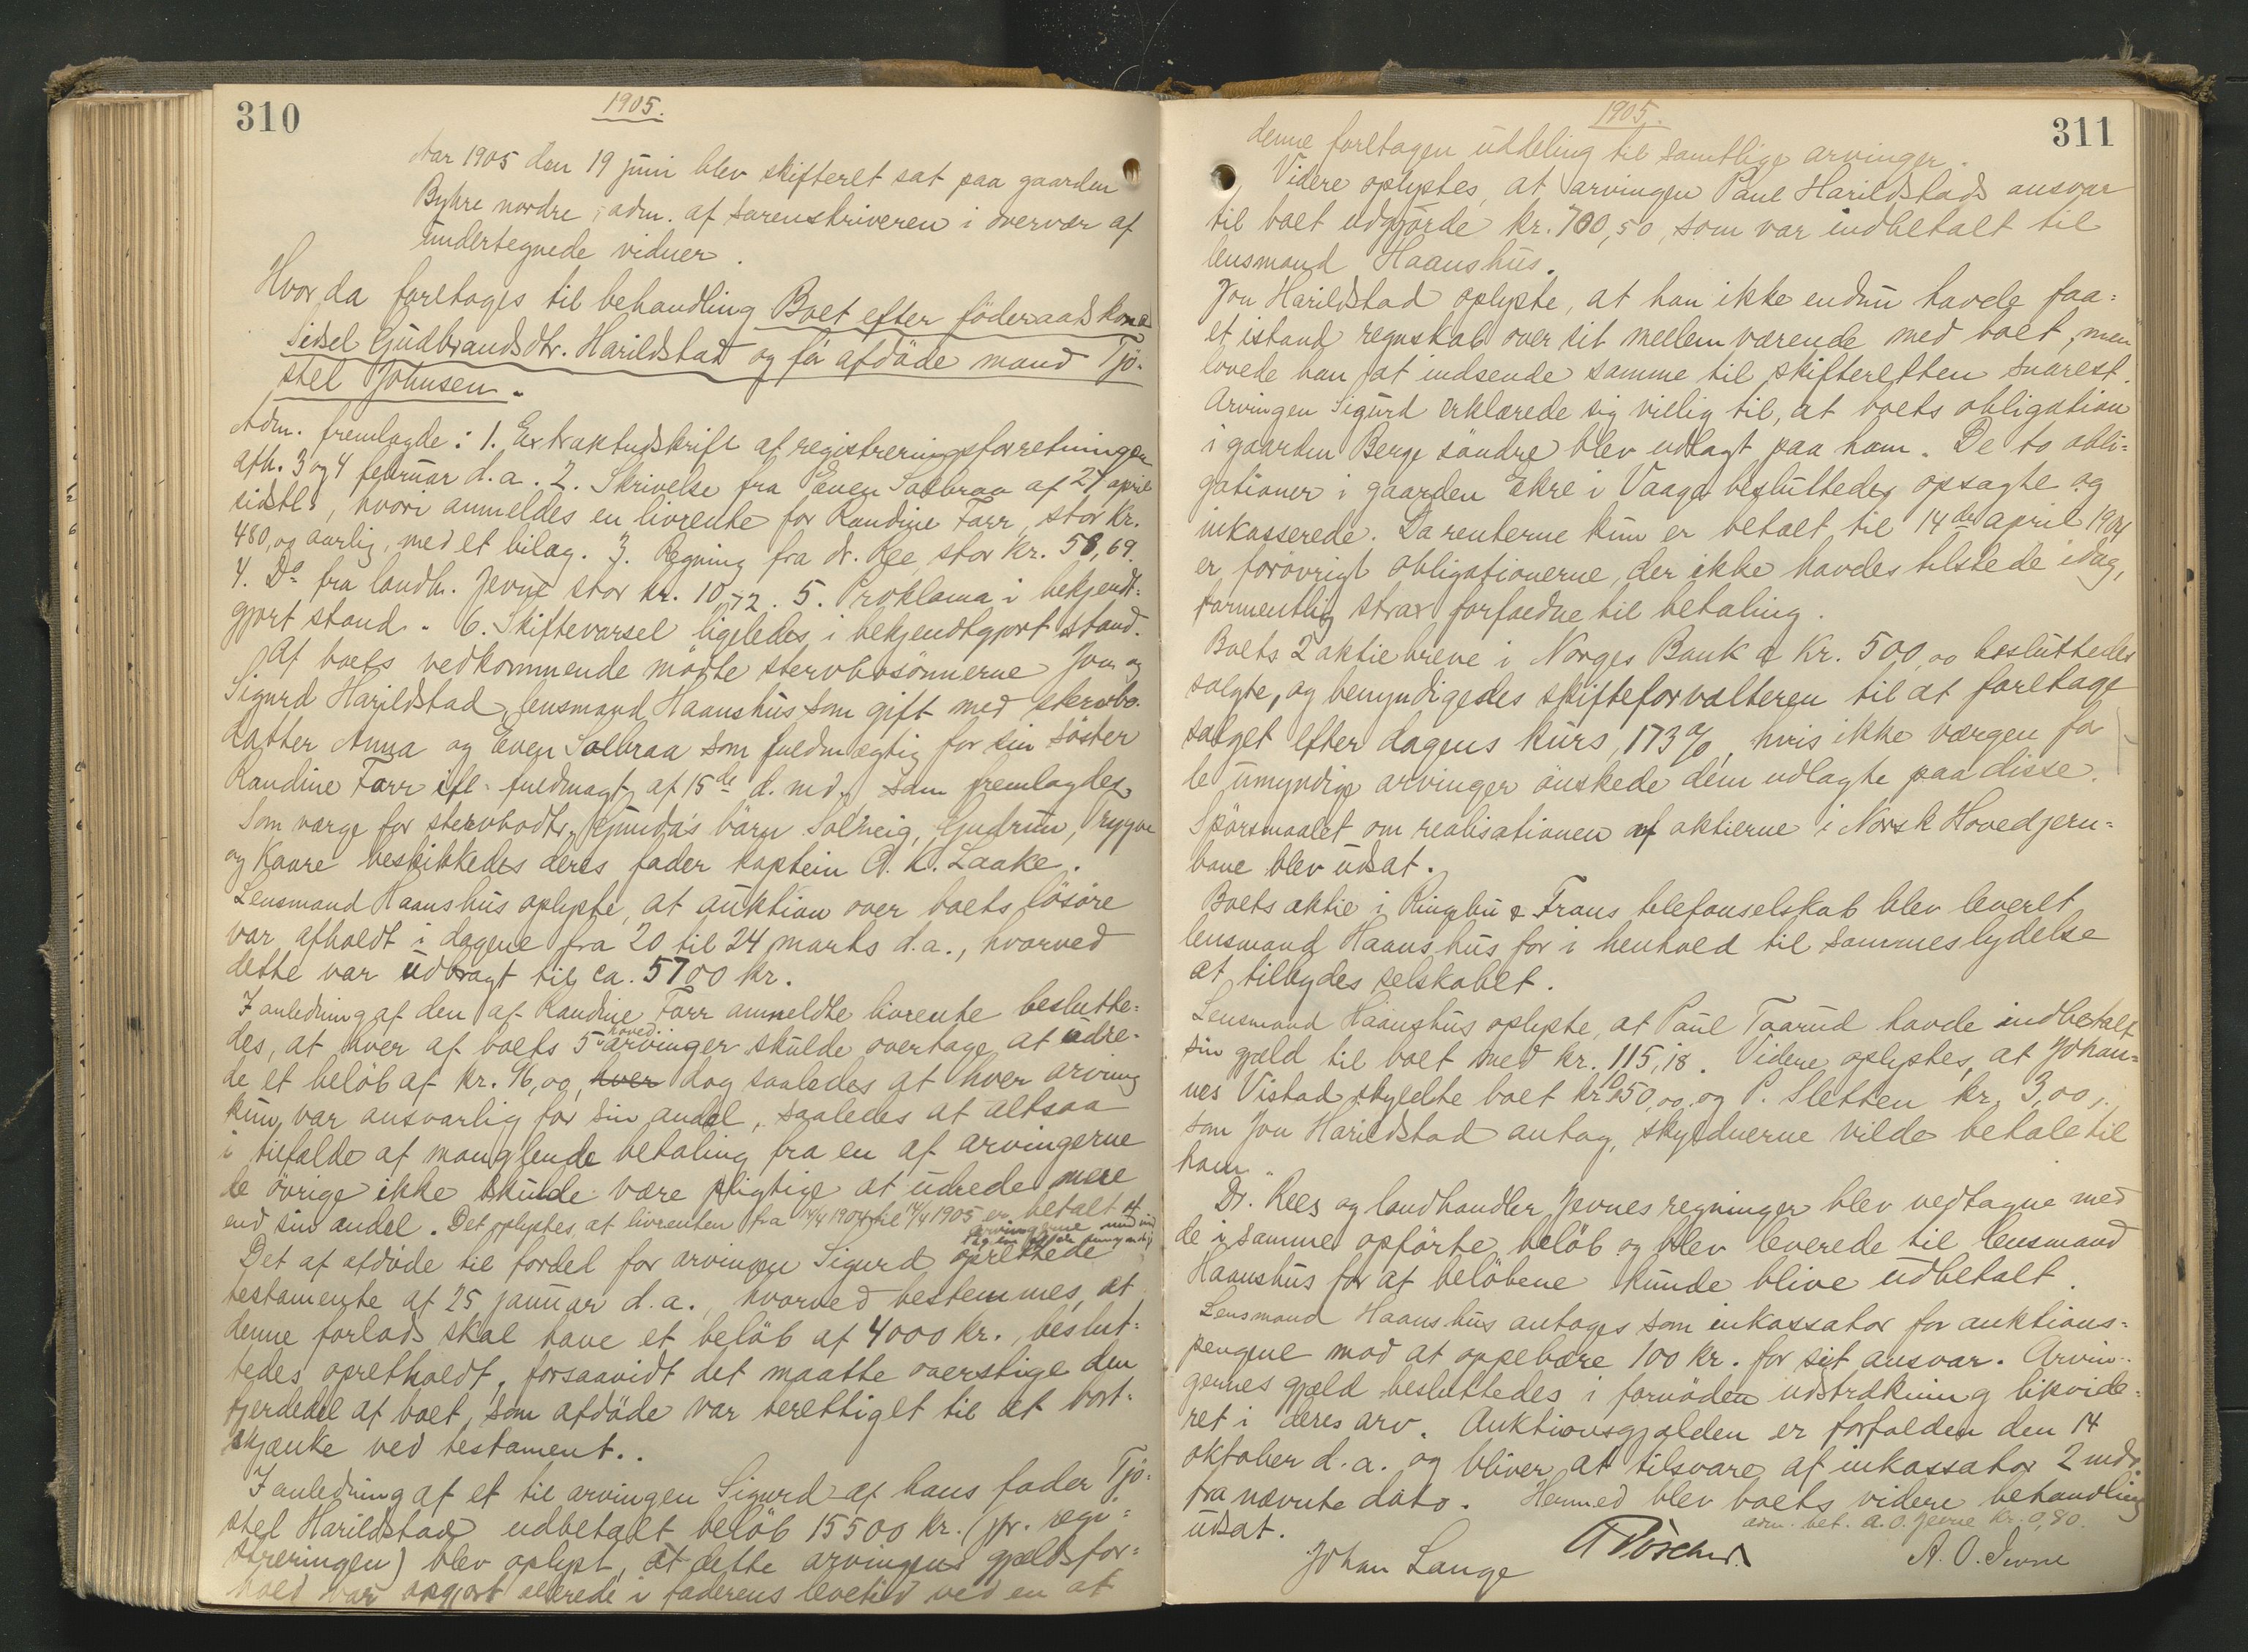 310
1905.
Aar 1905 den 19 juni blev skifteret sat paa gaarden
Byhre nordre, adm. af sorenskriveren i overvær af
undertegnede vidner.
Hvor da foretoges til behandling Boet efter föderaadskone
Sidsel Gudbrandsdtr. Harildstad og før afdöde mand Tjö-
stel Johnsen.
Adm. fremlagde: 1. Extraktudskrift af registreringsforretningen
afh. 3 og 4 februar d.a. 2. Skrivelse fra Even Solbraa af 27 april
sidstl., hvori anmeldes en livrente for Randine Farr, stor kr.
480,00 aarlig, med et bilag. 3. Regning fra dr. Ree stor kr. 58,69.
4. Do fra landh. Jevne stor kr. 10,72. 5. Proklama i bekjendt-
gjort stand. 6. Skiftevarsel ligeledes i bekjendtgjort stand.
Af boets vedkommende mödte stervbosönnerne Jon og
Sigurd Harildstad, lensmand Haanshus som gift med stervbo-
datter Anna og Even Solbraa som fuldmægtig for sin söster
Randine Farr ifl. fuldmagt af 15de d. md., som fremlagdes.
Som værge for stervbodtr. Gunda's börn Solveig, Gudrun, Trygve
og Kaare beskikkedes deres fader kaptein A. K. Laake.
Lensmand Haanshus oplyste, at auktion over boets lösöre
var afholdt i dagene fra 20 til 24 marts d.a., hvorved
dette var udbragt til ca. 5700 kr.
I anledning af den af Randine Farr anmeldte livrente beslutte-
des, at hver af boets 5 hoved-arvinger skulde overtage at udre-
de et belöb af kr. 96,00, hver dog saaledes at hver arving
kun var ansvarlig for sin andel, saaledes at altsaa
i tilfælde af manglende betaling fra en af arvingerne
de övrige ikke skulde være pligtige at udrede mere
end sin andel. Det oplystes, at livrenten fra 14/4 1904 til 14/4 1905 er betalt af
arvingerne
Det af afdöde til fordel for arvingen Sigurd oprettede
testamente af 25 januar d.a., hvorved bestemmes, at
denne forlods skal have et belöb af 4000 kr., beslut-
tedes opretholdt, forsaavidt det maatte overstige den
fjerdedel af boet, som afdöde var berettiget til at bort-
skjænke ved testament.
I anledning af et til arvingen Sigurd af hans fader Tjö-
stel Harildstad udbetalt belöb 15500 kr. (jfr. regi-
streringen) blev oplyst, at dette arvingens gjældsfor-
hold var opgjort allerede i faderens levetid ved en af
311
1905.
denne foretagen uddeling til samtlige arvinger.
Videre oplystes, at arvingen Paul Harildstads ansvar
til boet udgjorde kr. 700,50, som var indbetalt til
lensmand Haanshus.
Jon Harildstad oplyste, at han ikke endnu havde faa-
et istand regnskab over sit mellemværende med boet, men
lovede han at indsende samme til skifteretten snarest.
Arvingen Sigurd erklærede sig villig til, at boets obligation
i gaarden Berge söndre blev udlagt paa ham. De to obli-
gationer i gaarden Ekre i Vaage besluttedes opsagte og
inkasserede. Da renterne kun er betalt til 14de april 1904
er forövrigt obligationerne, der ikke havdes tilstede idag,
formentlig strax forfaldne til betaling.
Boets 2 aktiebreve i Norges Bank a Kr. 500,00 besluttedes
solgte, og bemyndigedes skifteforvalteren til at foretage
salget efter dagens kurs, 173 %, hvis ikke værgen for
de umyndige arvinger önskede dem udlagte paa disse.
Spörsmaalet om realisationen af aktierne i Norsk Hovedjern-
bane blev udsat.
Boets aktie i Ringebu & Frons telefonselskab blev leveret
lensmand Haanshus for i henhold til sammes lydelse
at tilbydes selskabet.
Lensmand Haanshus oplyste, at Paul Taarud havde indbetalt
sin gjæld til boet med kr. 115,18. Videre oplystes, at Johan-
nes Vistad skyldte boet kr. 1050,00, og P. Sletten kr. 3,00,
som Jon Harildstad antog, skyldnerne vilde betale til
ham.
Dr. Rees og landhandler Jevnes regninger blev vedtagne med
de i samme opförte belöb og blev leverede til lensmand
Haanshus for at belöbene kunde blive udbetalt.
Lensmand Haanshus antoges som inkassator for auktions-
pengene mod at oppebære 100 kr. for sit ansvar. Arvin-
gernes gjæld besluttedes i fornöden udstrækning likvide-
ret i deres arv. Auktionsgjælden er forfalden den 14
oktober d.a. og bliver at tilsvare af inkassator 2 mdr.
fra nævnte dato. Hermed blev boets videre behandling
udsat.
adm. bet. A. O. Jevne kr. 0,80.
Johan Lange
A. O. Jevne